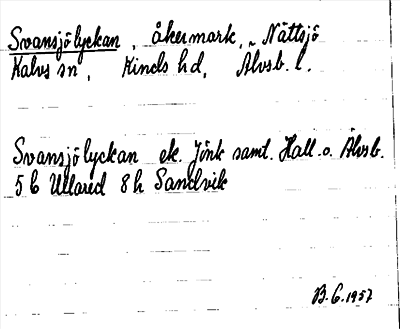 Svansjölyckan, åkermark, Nättsjö
Kalvs sn, Kinds hd, Älvsb. l.
Svansjölyckan ek. Jönk samt. Hall. o. Älvsb.
5 b Ullared 8 h Sandvik
B. G. 1957